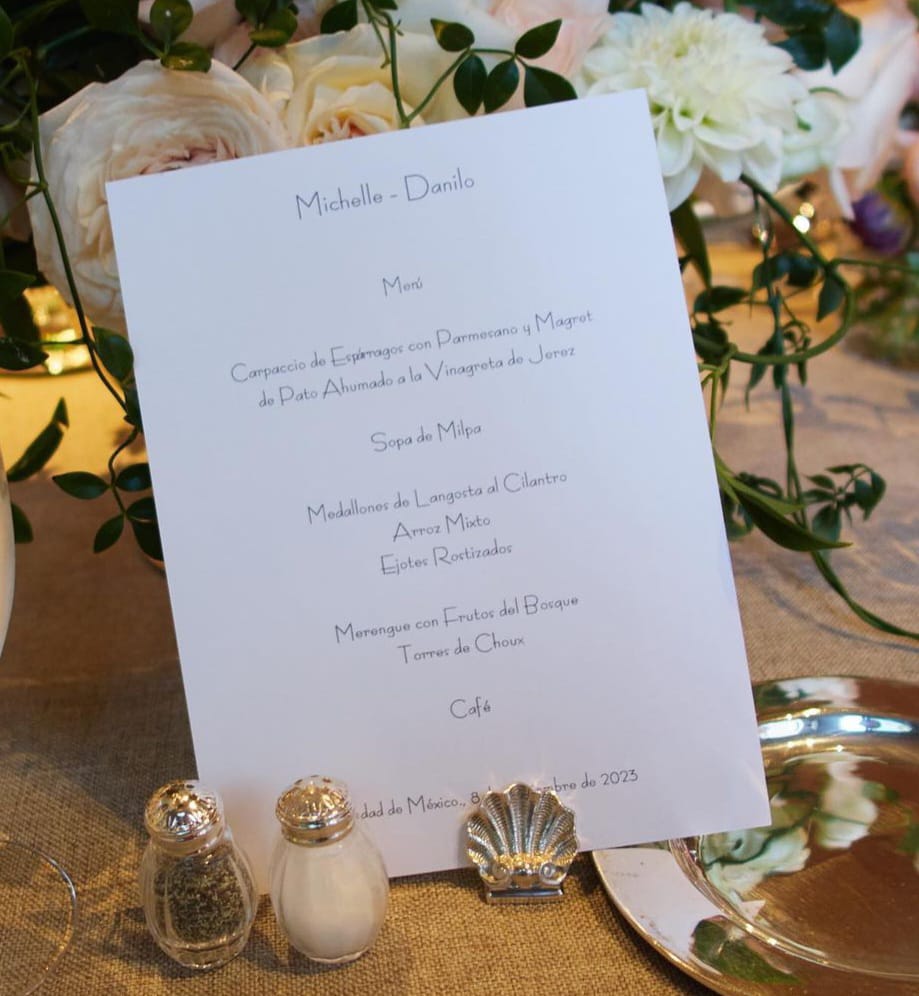 Michelle - Danilo
Menú
Carpaccio de Espárragos con Parmesano y Magret
de Pato Ahumado a la Vinagreta de Jerez
Sopa de Milpa
Medallones de Langosta al Cilantro
Arroz Mixto
Ejotes Rostizados
Merengue con Frutos del Bosque
Torres de Choux
Café
dad de México., 8 mbre de 2023